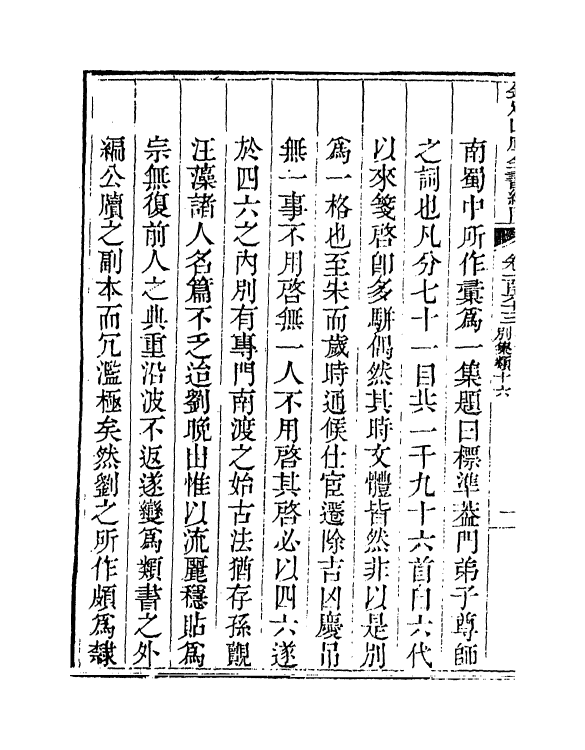 南蜀中所作彚爲一集題曰標準葢門弟子尊師
之詞也凡分七十一目共一千九十六首自六代
以來箋啓卽多駢偶然其時文體皆然非以是別
爲一格也至宋而歲時通候仕宦遷除吉凶慶弔
無一事不用啓無一人不用啓其啓必以四六遂
於四六之內別有專門南渡之始古法猶存孫覿
汪藻諸人名篇不乏迨劉晚山惟以流麗穩貼爲
宗無復前人之典重沿波不返遂變爲類書之外
編公牘之副本而冗濫極矣然劉之所作頗爲隸